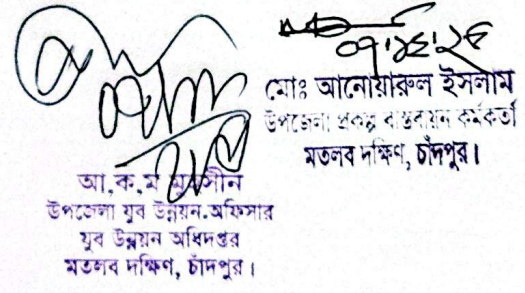 মোঃ আনোয়ারুল ইসলাম
উপজেলা প্রকল্প বাস্তবায়ন কর্মকর্তা
মতলব দক্ষিণ, চাঁদপুর।
আ,ক,ম
উপজেলা যুব উন্নয়ন অফিসার
যুব উন্নয়ন অধিদপ্তর
মতলব দক্ষিণ, চাঁদপুর।